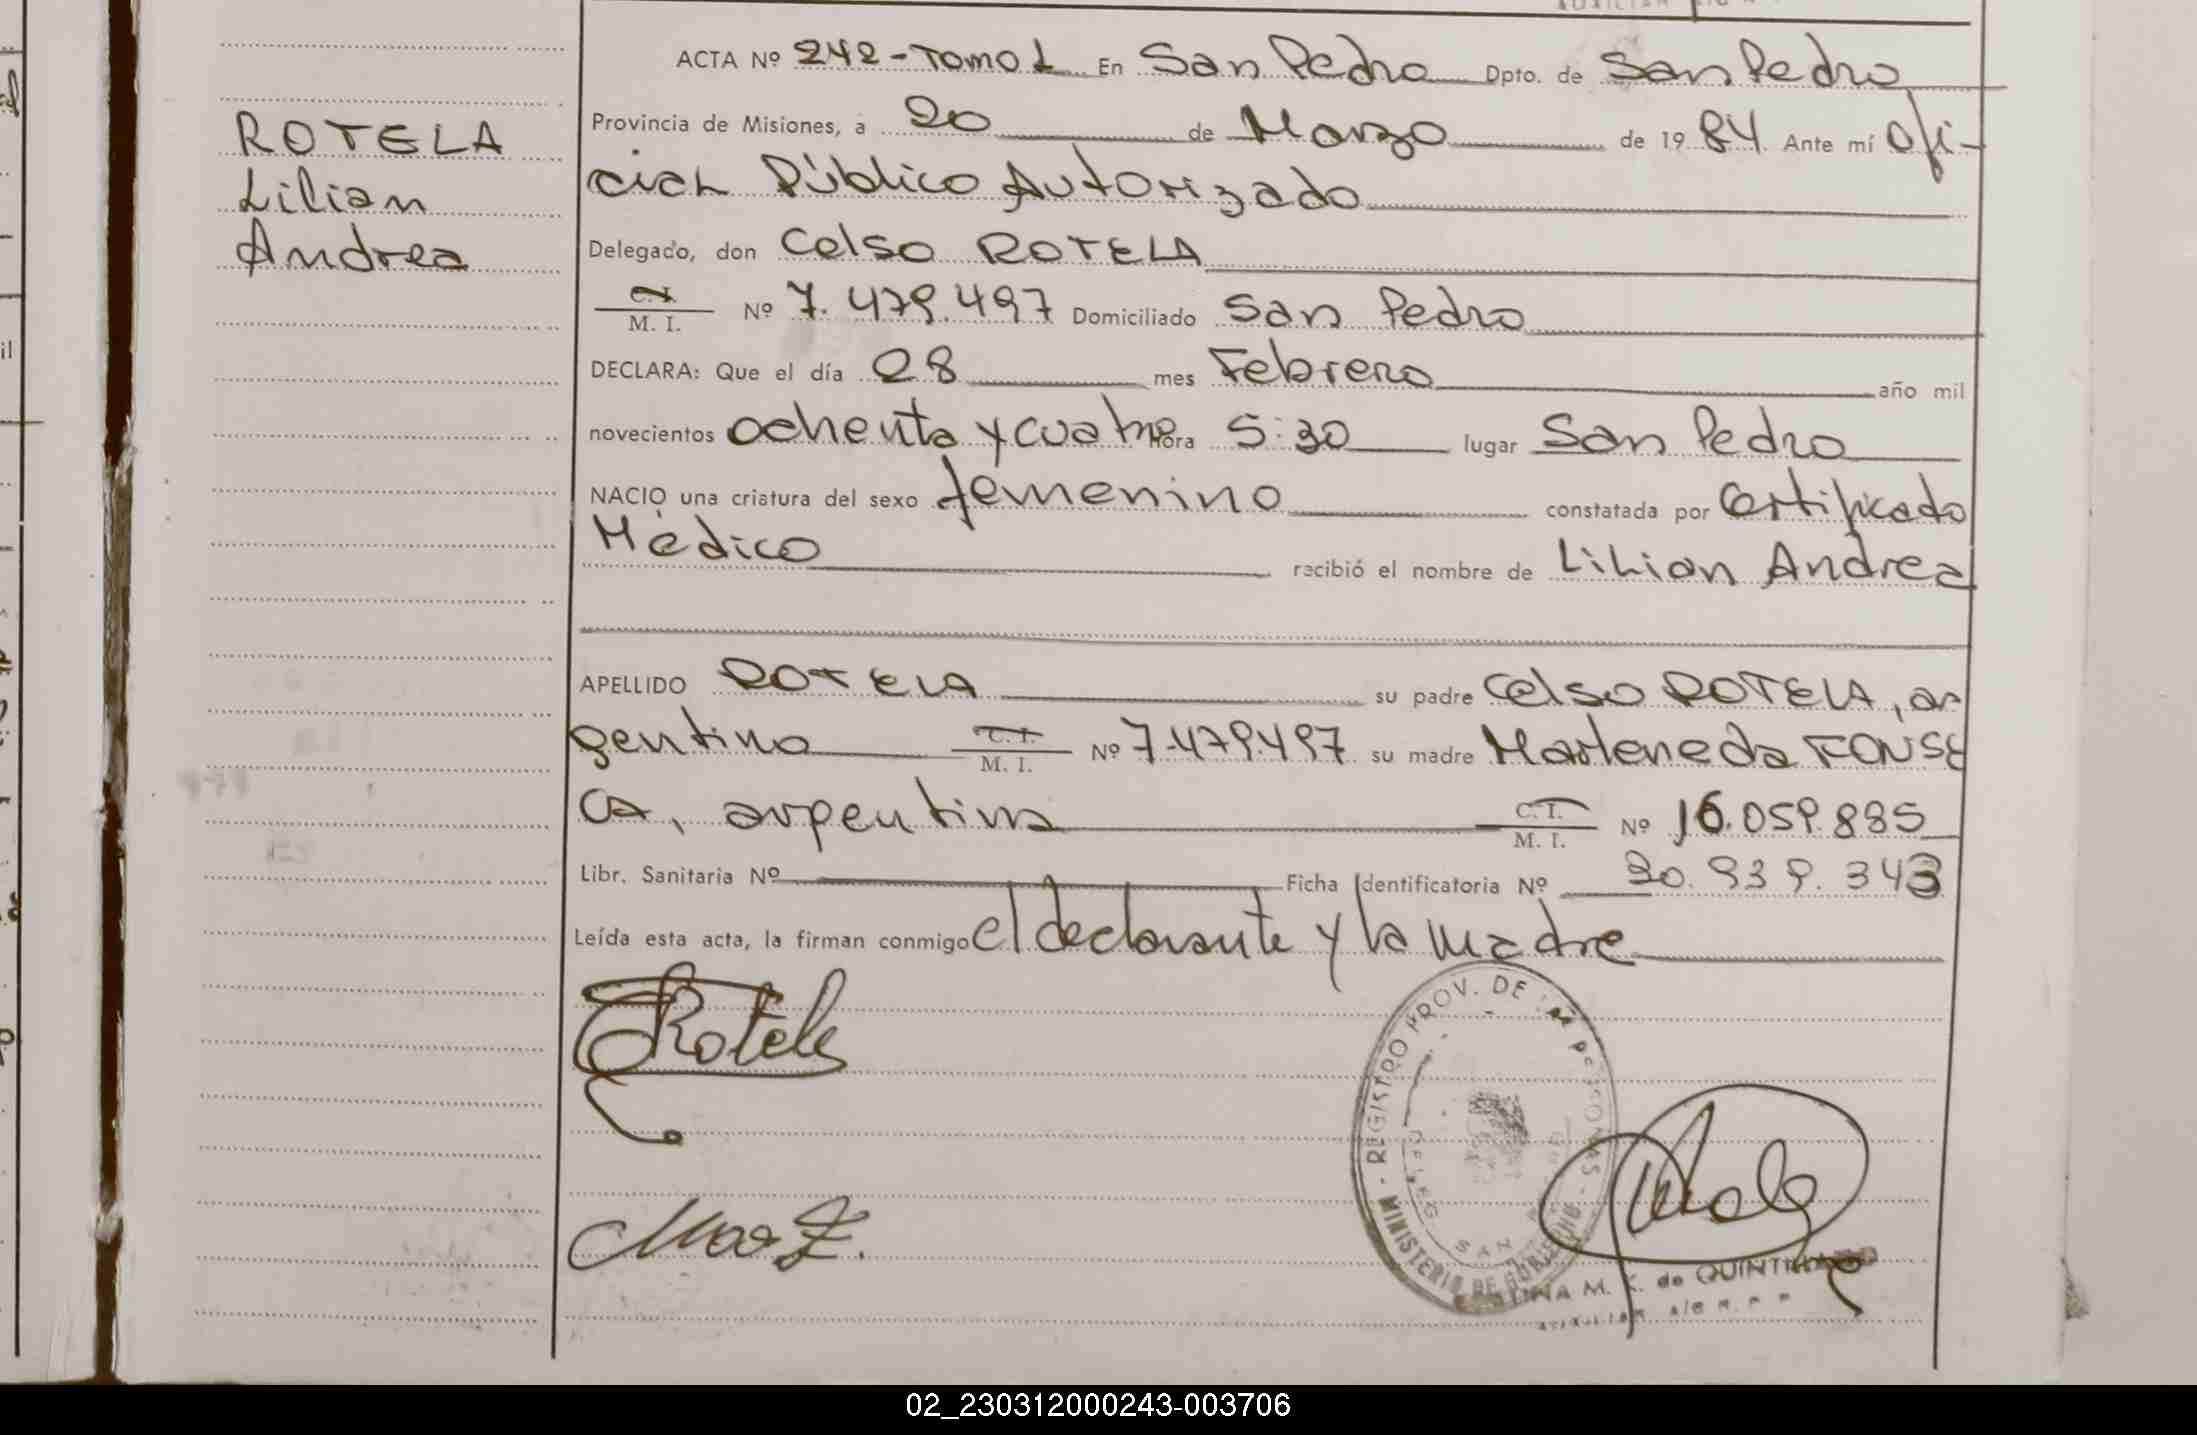 ROTELA
Lilian
Andrea
ACTA Nº 242-Tomo 1 En San Pedro Dpto. de San Pedro
Provincia de Misiones, a 20 de Marzo de 1984 Ante mí Ofi-
cial Público Autorizado
Delegado, don Celso ROTELA
C. I.
M. I. Nº 7.479.497 Domiciliado San Pedro
DECLARA: Que el día 28 mes Febrero año mil
novecientos ochenta y cuatro hora 5:30 lugar San Pedro
NACIO una criatura del sexo femenino constatada por Certificado
Médico recibió el nombre de Lilian Andrea
APELLIDO ROTELA su padre Celso ROTELA, ar
gentino C. I.
M. I. Nº 7.479.497 su madre Marlene da FONSE
CA, argentina C. I.
M. I. Nº 16.059.885
Libr. Sanitaria Nº Ficha Identificatoria Nº 30.939.343
Leída esta acta, la firman conmigo el declarante y la madre
Rotela
REGISTRO PROV. DE LAS PERSONAS - MINISTERIO DE GOBIERNO
SAN
M. K. de
02_230312000243-003706